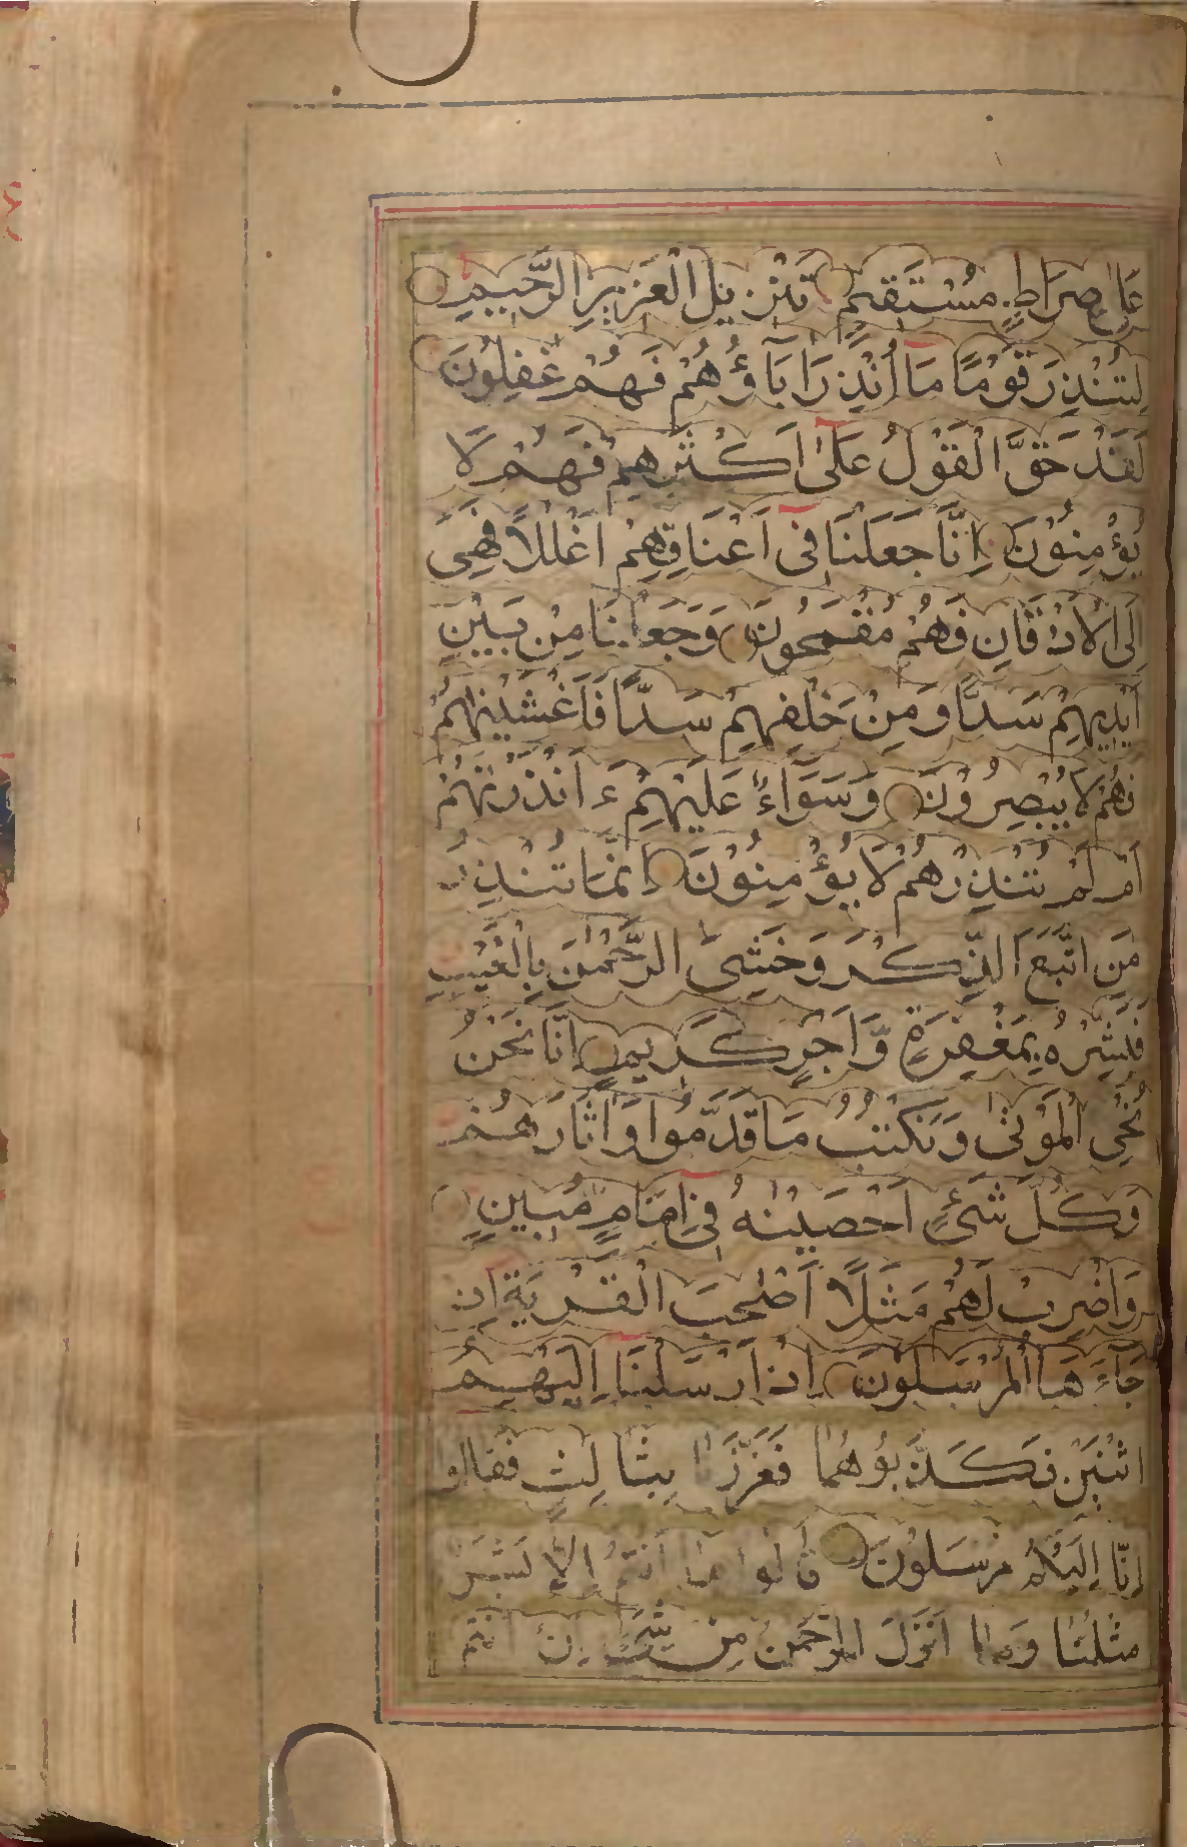 عَلٰى صِرَاطٍ مُسْتَقِيْمٍ تَنْزِيْلَ الْعَزِيْزِ الرَّحِيْمِ
لِتُنْذِرَ قَوْمًا مَا اُنْذِرَ اٰبَاؤُهُمْ فَهُمْ غٰفِلُوْنَ
لَقَدْ حَقَّ الْقَوْلُ عَلٰى اَكْثَرِهِمْ فَهُمْ لَا
يُؤْمِنُوْنَ اِنَّا جَعَلْنَا فِى اَعْنَاقِهِمْ اَغْلٰلًا فَهِىَ
اِلَى الْاَذْقَانِ فَهُمْ مُقْمَحُوْنَ وَجَعَلْنَا مِنْ بَيْنِ
اَيْدِيْهِمْ سَدًّا وَمِنْ خَلْفِهِمْ سَدًّا فَاَغْشَيْنٰهُمْ
فَهُمْ لَا يُبْصِرُوْنَ وَسَوَاءٌ عَلَيْهِمْ ءَاَنْذَرْتَهُمْ
اَمْ لَمْ تُنْذِرْهُمْ لَا يُؤْمِنُوْنَ اِنَّمَا تُنْذِرُ
مَنِ اتَّبَعَ الذِّكْرَ وَخَشِىَ الرَّحْمٰنَ بِالْغَيْبِ
فَبَشِّرْهُ بِمَغْفِرَةٍ وَّاَجْرٍ كَرِيْمٍ اِنَّا نَحْنُ
نُحْىِ الْمَوْتٰى وَنَكْتُبُ مَا قَدَّمُوا وَاٰثَارَهُمْ
وَكُلَّ شَىْءٍ اَحْصَيْنٰهُ فِى اِمَامٍ مُّبِيْنٍ
وَاضْرِبْ لَهُمْ مَثَلًا اَصْحٰبَ الْقَرْيَةِ اِذْ
جَاءَهَا الْمُرْسَلُوْنَ اِذْ اَرْسَلْنَا اِلَيْهِمُ
اثْنَيْنِ فَكَذَّبُوْهُمَا فَعَزَّزْنَا بِثَالِثٍ فَقَالُوا
اِنَّا اِلَيْكُمْ مُرْسَلُوْنَ قَالُوا مَا اَنْتُمْ اِلَّا بَشَرٌ
مِثْلُنَا وَمَا اَنْزَلَ الرَّحْمٰنُ مِنْ شَىْءٍ اِنْ اَنْتُمْ